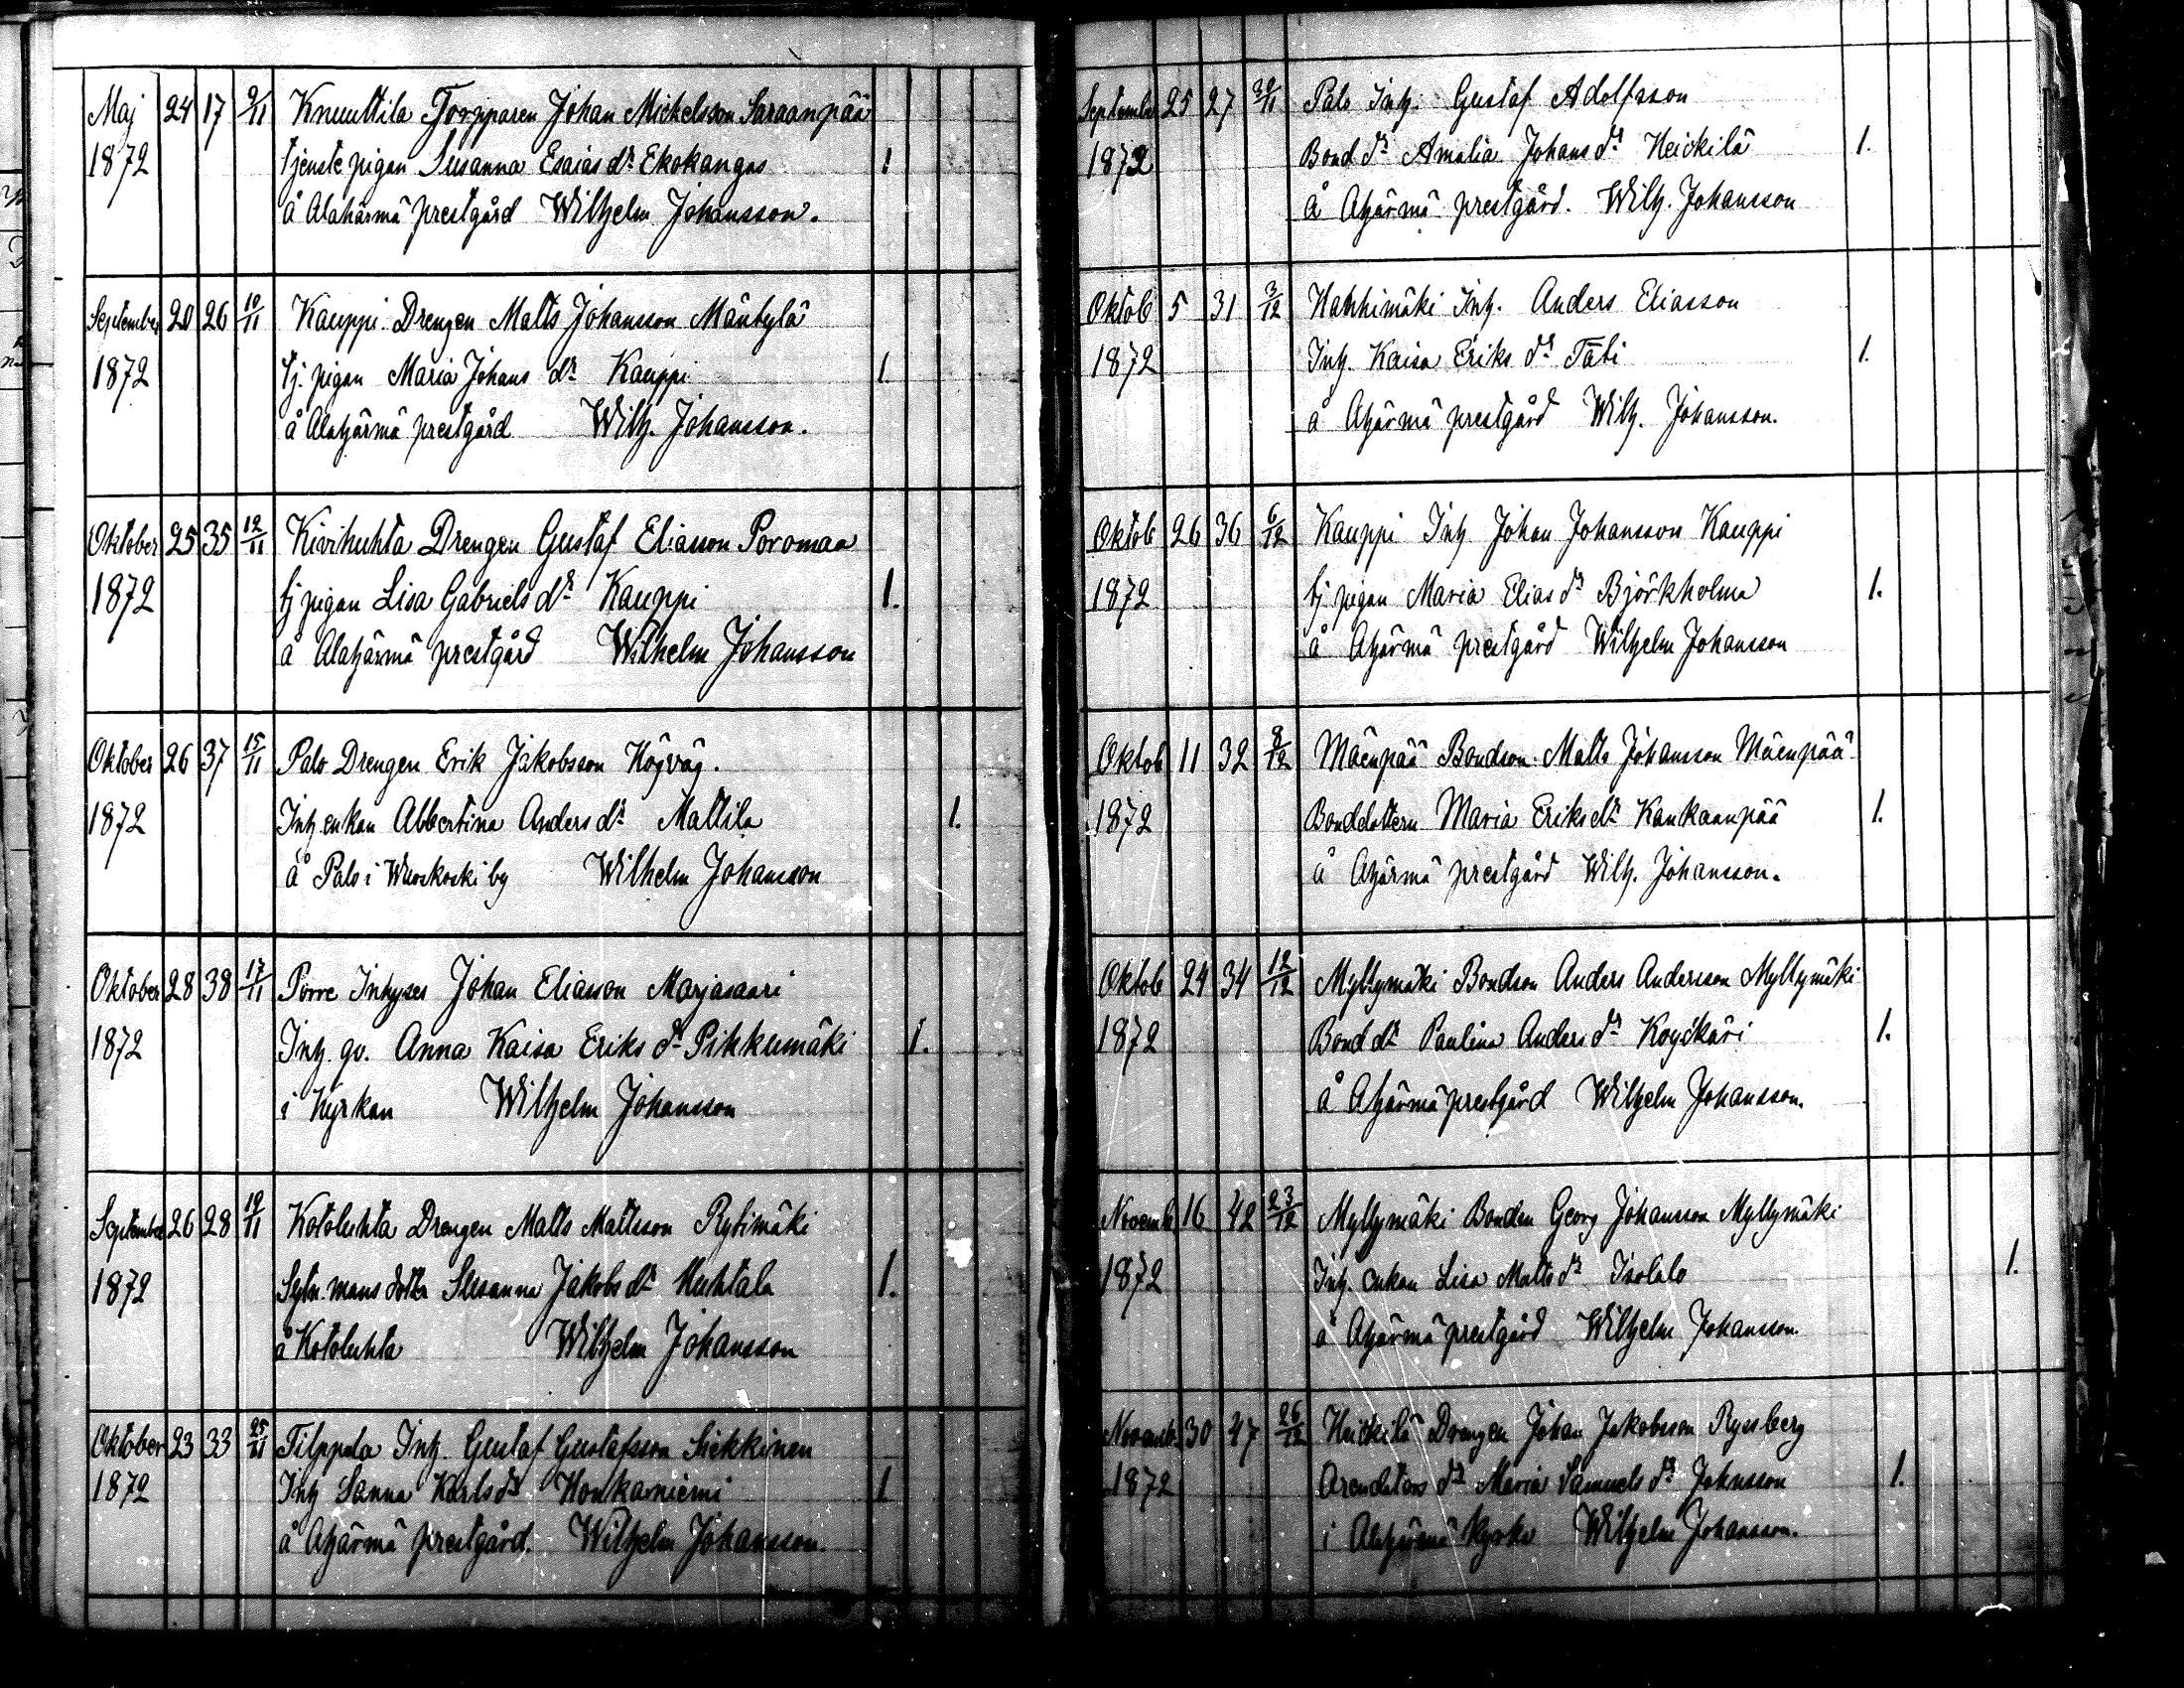 Maj 24 17 9/11 Knuuttila Torpparen Johan Michelsson Saraanpää
1872 tjenste pigan Susanna Esaias dr Ekokangas 1
å Alahärmä prestgård Wilhelm Johansson.
September 20 26 10/11 Kauppi Drengen Matts Johansson Mäntylä
1872 tj. pigan Maria Johans dr Kauppi 1.
å Alahärmä prestgård Wilh. Johansson.
Oktober 25 35 12/11 Kivihuhta Drengen Gustaf Eliasson Poromaa
1872 tj pigan Lisa Gabriels dr Kauppi 1.
å Alahärmä prestgård Wilhelm Johansson
Oktober 26 37 15/11 Palo Drengen Erik Jakobsson Högväg.
1872 Inh. enkan Abbertina Anders dr Mattila 1.
å Palo i Wuoskoski by Wilhelm Johansson
Oktober 28 38 17/11 Porre Inhyses Johan Eliasson Marjasaari
1872 Inh. qv. Anna Kaisa Eriks dr Pihkumäki 1.
i Kyrkan Wilhelm Johansson
September 26 28 19/11 Kotoluhta Drengen Matts Mattsson Rytimäki
1872 Sytn. mans dotter Susanna Jakobs dr Huhtala 1.
å Kotoluhta Wilhelm Johansson
Oktober 23 33 25/11 Filppula Inh. Gustaf Gustafsson Siekkinen
1872 Inh Sanna Karls dr Honkaniemi 1
å Ahärmä prestgård. Wilhelm Johansson.
September 25 27 30/11 Palo Inh. Gustaf Adolfsson
1872 Bond dr Amalia Johans dr Heickilä 1.
å Ahärmä prestgård. Wilh. Johansson
Oktob 5 31 3/12 Hahhimäki Inh. Anders Eliasson
1872 Inh. Kaisa Eriks dr Täti 1.
å Ahärmä prestgård Wilh. Johansson.
Oktob 26 36 6/12 Kauppi Inh Johan Johansson Kauppi
1872 tj pigan Maria Elias dr Björkholma 1.
å Ahärmä prestgård Wilhelm Johansson
Oktob 11 32 8/12 Mäenpää Bondson Matts Johansson Mäenpää
1872 Bonddottern Maria Eriks dr Kankaanpää 1.
å Ahärmä prestgård Wilh. Johansson.
Oktob 24 34 12/12 Myllymäki Bondson Anders Andersson Myllymäki
1872 Bond dr Paulina Anders dr Köykäri 1.
å Ahärmä prestgård Wilhelm Johansson.
Novemb 16 42 23/12 Myllymäki Bonden Georg Johansson Myllymäki
1872 Inh. enkan Lisa Matts dr Isolalo 1.
å Ahärmä prestgård Wilhelm Johansson.
Novemb 30 47 26/12 Heickilä Drengen Johan Jakobsson Rysberg
1872 Arendators dr Maria Samuels dr Johnsson 1.
i Alahärmä Kyrka Wilhelm Johansson.